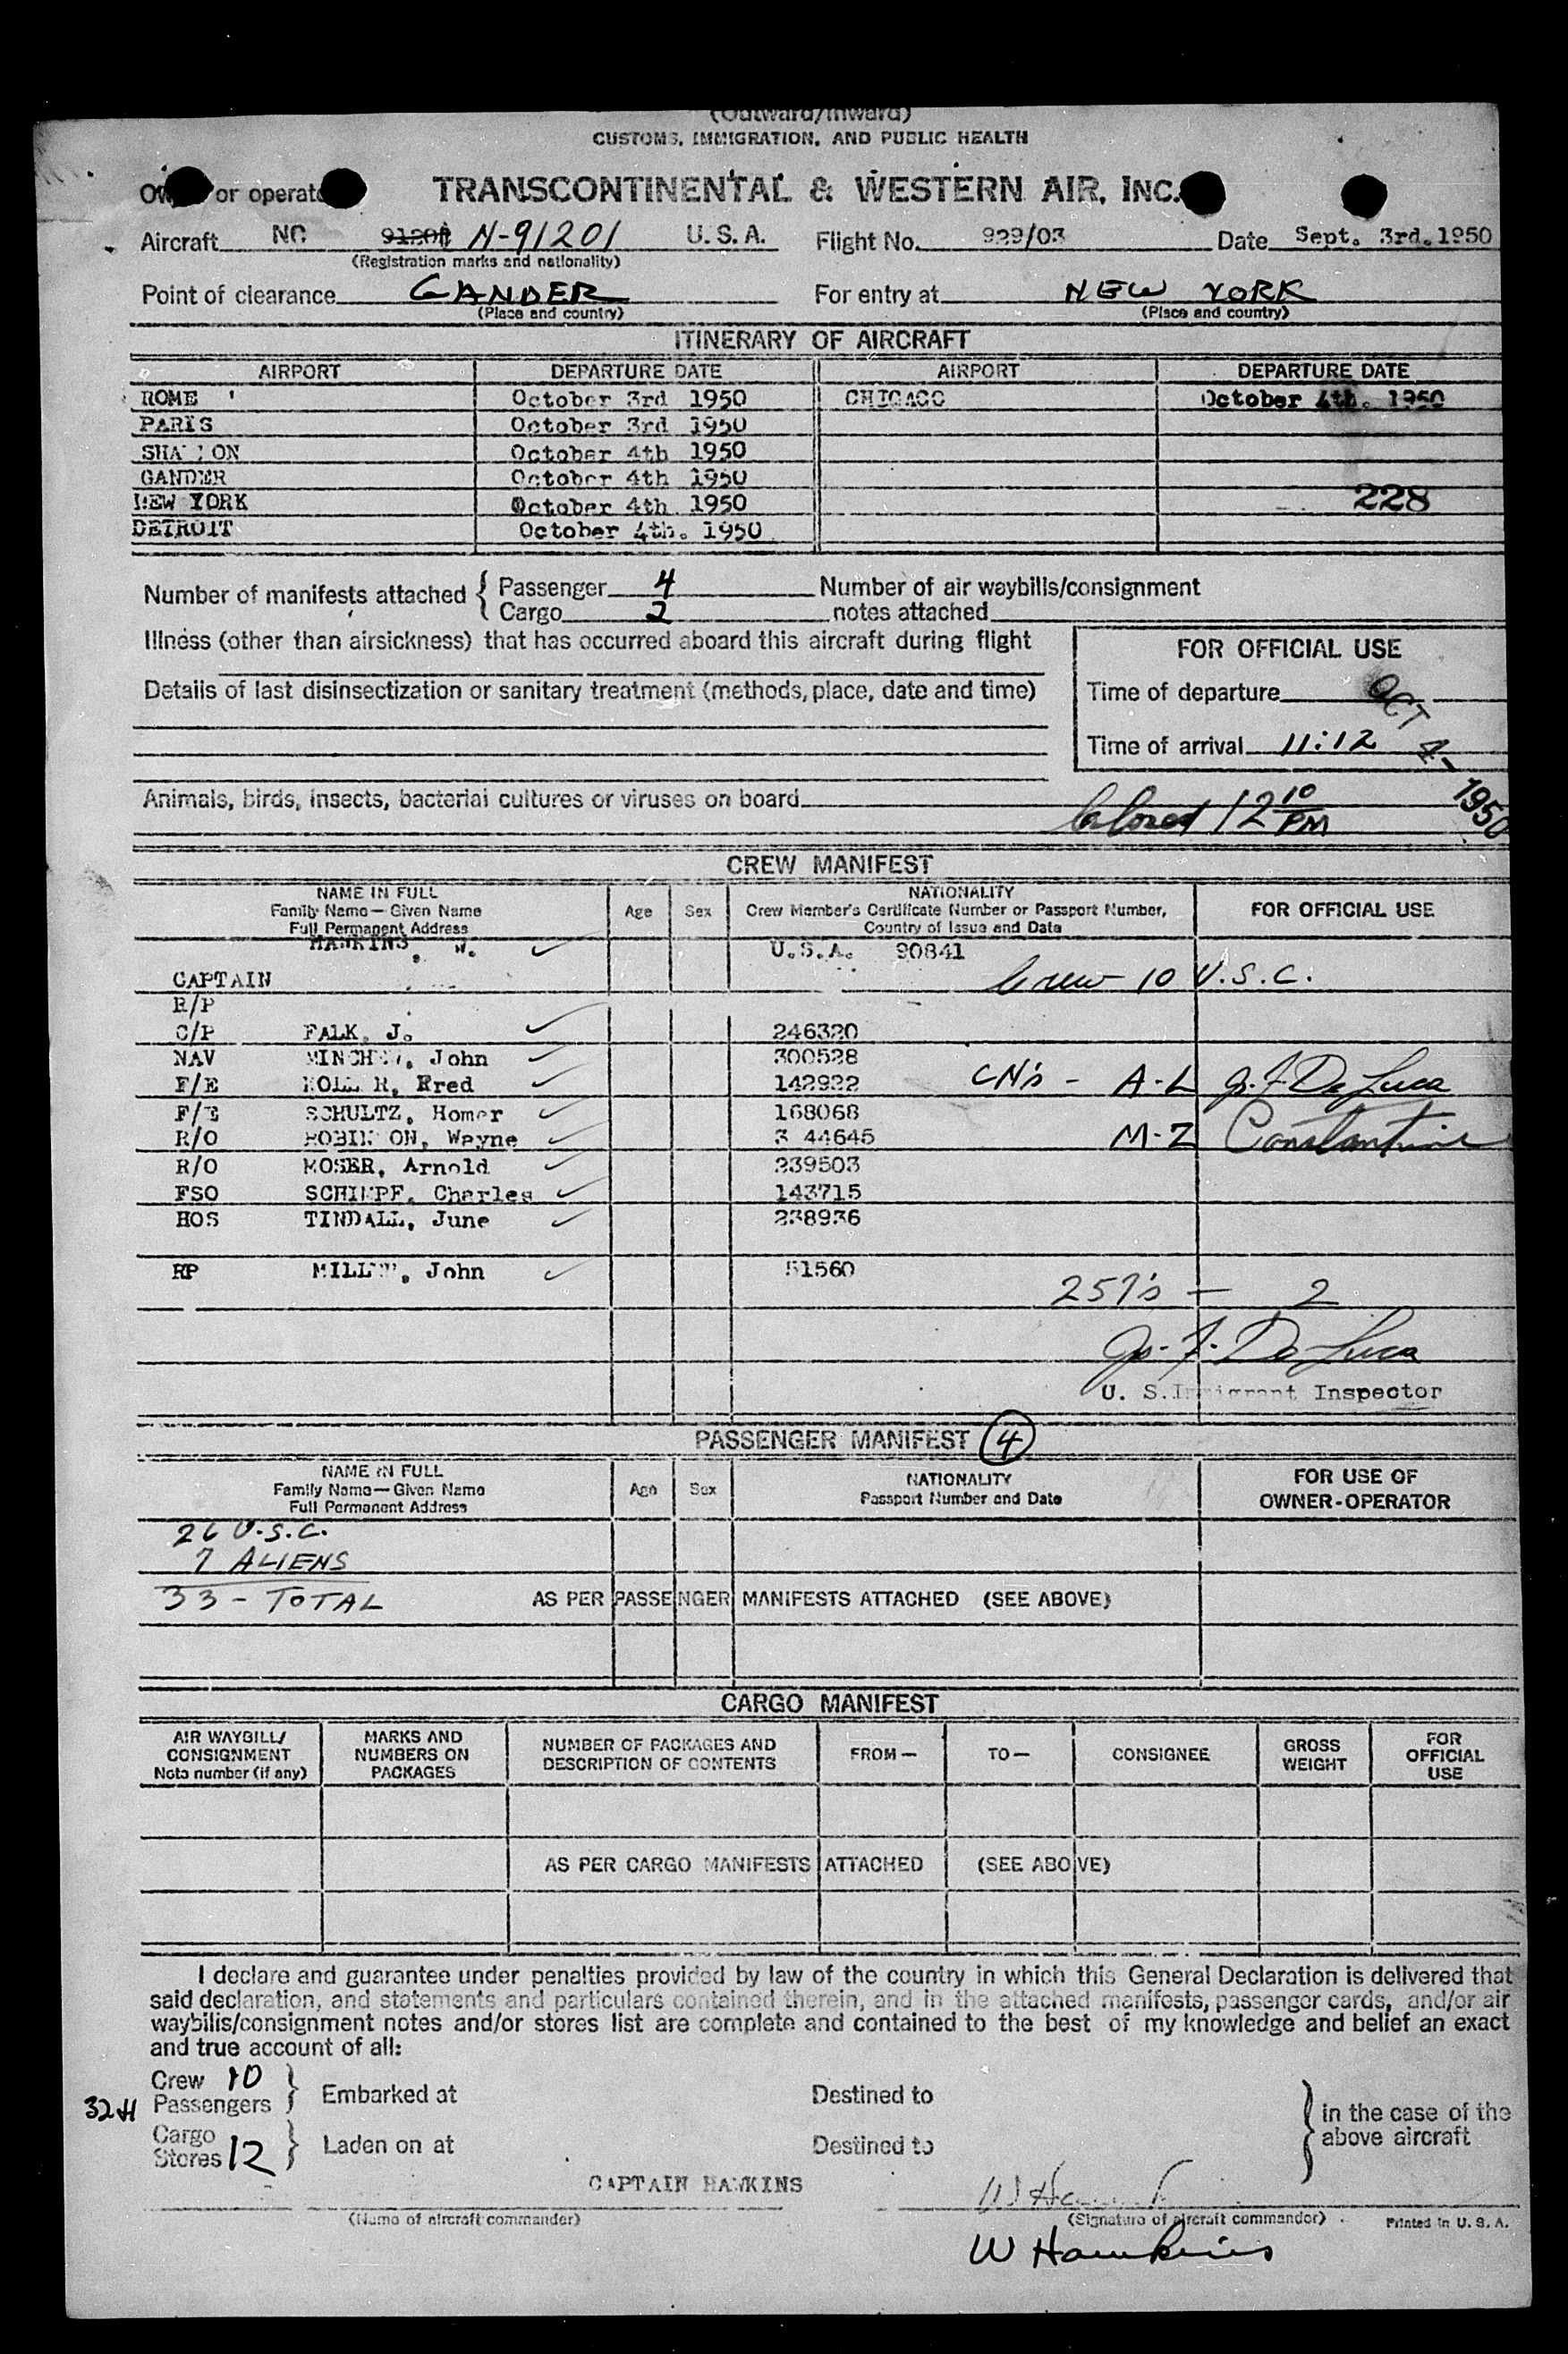 (Outward/Inward)
CUSTOMS, IMMIGRATION, AND PUBLIC HEALTH
or operator TRANSCONTINENTAL & WESTERN AIR, INC.
Aircraft NC N-91201 U.S.A. Flight No. 929/03 Date Sept. 3rd.1950
(Registration marks and nationality)
Point of clearance GANDER For entry at NEW YORK
(Place and country) (Place and country)
ITINERARY OF AIRCRAFT
AIRPORT DEPARTURE DATE AIRPORT DEPARTURE DATE
ROME October 3rd 1950 CHICAGO October 4th. 1950
PARIS October 3rd 1950
SHA ON October 4th 1950
GANDER October 4th 1950
NEW YORK October 4th 1950 228
DETROIT October 4th. 1950
Number of manifests attached { Passenger 4 Number of air waybills/consignment
Cargo 2 notes attached
Illness (other than airsickness) that has occurred aboard this aircraft during flight
FOR OFFICIAL USE
Details of last disinsectization or sanitary treatment (methods, place, date and time)
Time of departure
OCT 4- 1950
Time of arrival 11:12
Animals, birds, insects, bacterial cultures or viruses on board
12 10 PM
CREW MANIFEST
NAME IN FULL NATIONALITY
Family Name—Given Name Age Sex Crew Member's Certificate Number or Passport Number, FOR OFFICIAL USE
Full Permanent Address Country of Issue and Date
HAWKINS, W. U.S.A. 90841
CAPTAIN Crew - 10 U.S.C.
R/P
C/P FALK, J. 246320
NAV John 300528
F/E Fred 142922 CN's - A-L J. F. De Luca
F/E SCHULTZ, Homer 168068
R/O ROBIN ON, Wayne 3 44645 M-Z Constantine
R/O MOSER, Arnold 239503
FSO SCHIMPF, Charles 143715
HOS TINDALL, June 238936
RP John 51560
257's - 2
J. F. De Luca
U. S. Immigrant Inspector
PASSENGER MANIFEST 4
NAME IN FULL NATIONALITY FOR USE OF
Family Name—Given Name Age Sex Passport Number and Date OWNER-OPERATOR
Full Permanent Address
26 U.S.C.
7 ALIENS
33 - TOTAL AS PER PASSENGER MANIFESTS ATTACHED (SEE ABOVE)
CARGO MANIFEST
AIR WAYBILL/ MARKS AND NUMBER OF PACKAGES AND FROM— TO— CONSIGNEE GROSS FOR
CONSIGNMENT NUMBERS ON DESCRIPTION OF CONTENTS WEIGHT OFFICIAL
Note number (if any) PACKAGES USE
AS PER CARGO MANIFESTS ATTACHED (SEE ABOVE)
I declare and guarantee under penalties provided by law of the country in which this General Declaration is delivered that
said declaration, and statements and particulars contained therein, and in the attached manifests, passenger cards, and/or air
waybills/consignment notes and/or stores list are complete and contained to the best of my knowledge and belief an exact
and true account of all:
Crew 10 } Embarked at Destined to } in the case of the
32+1 Passengers
Cargo } Laden on at Destined to above aircraft
Stores 12
CAPTAIN HAWKINS
(Name of aircraft commander) (Signature of aircraft commander) Printed in U. S. A.
W Hawkins